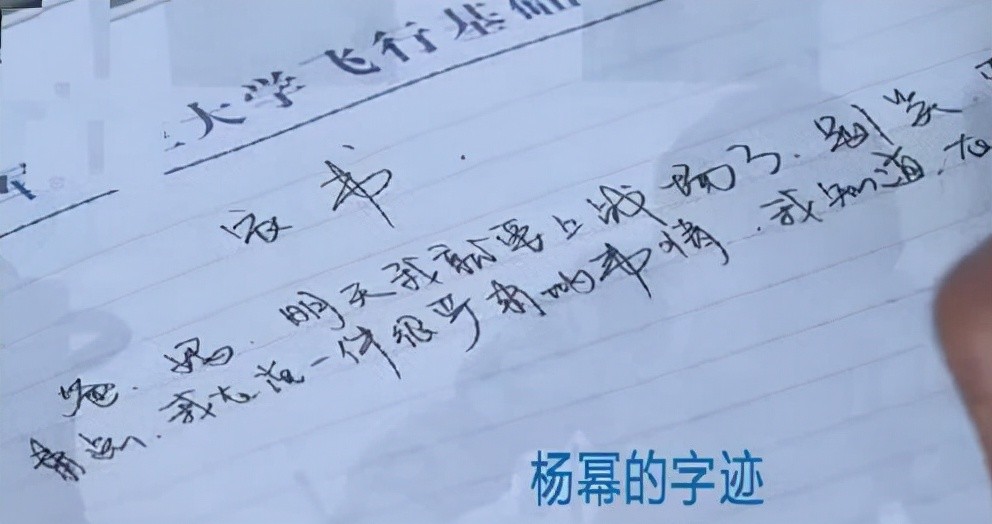 大学飞行基础
家书.
爸.妈.明天我就要上战场了.别笑
肃点.我在说一件很严肃的事情.我知道.在
杨幂的字迹